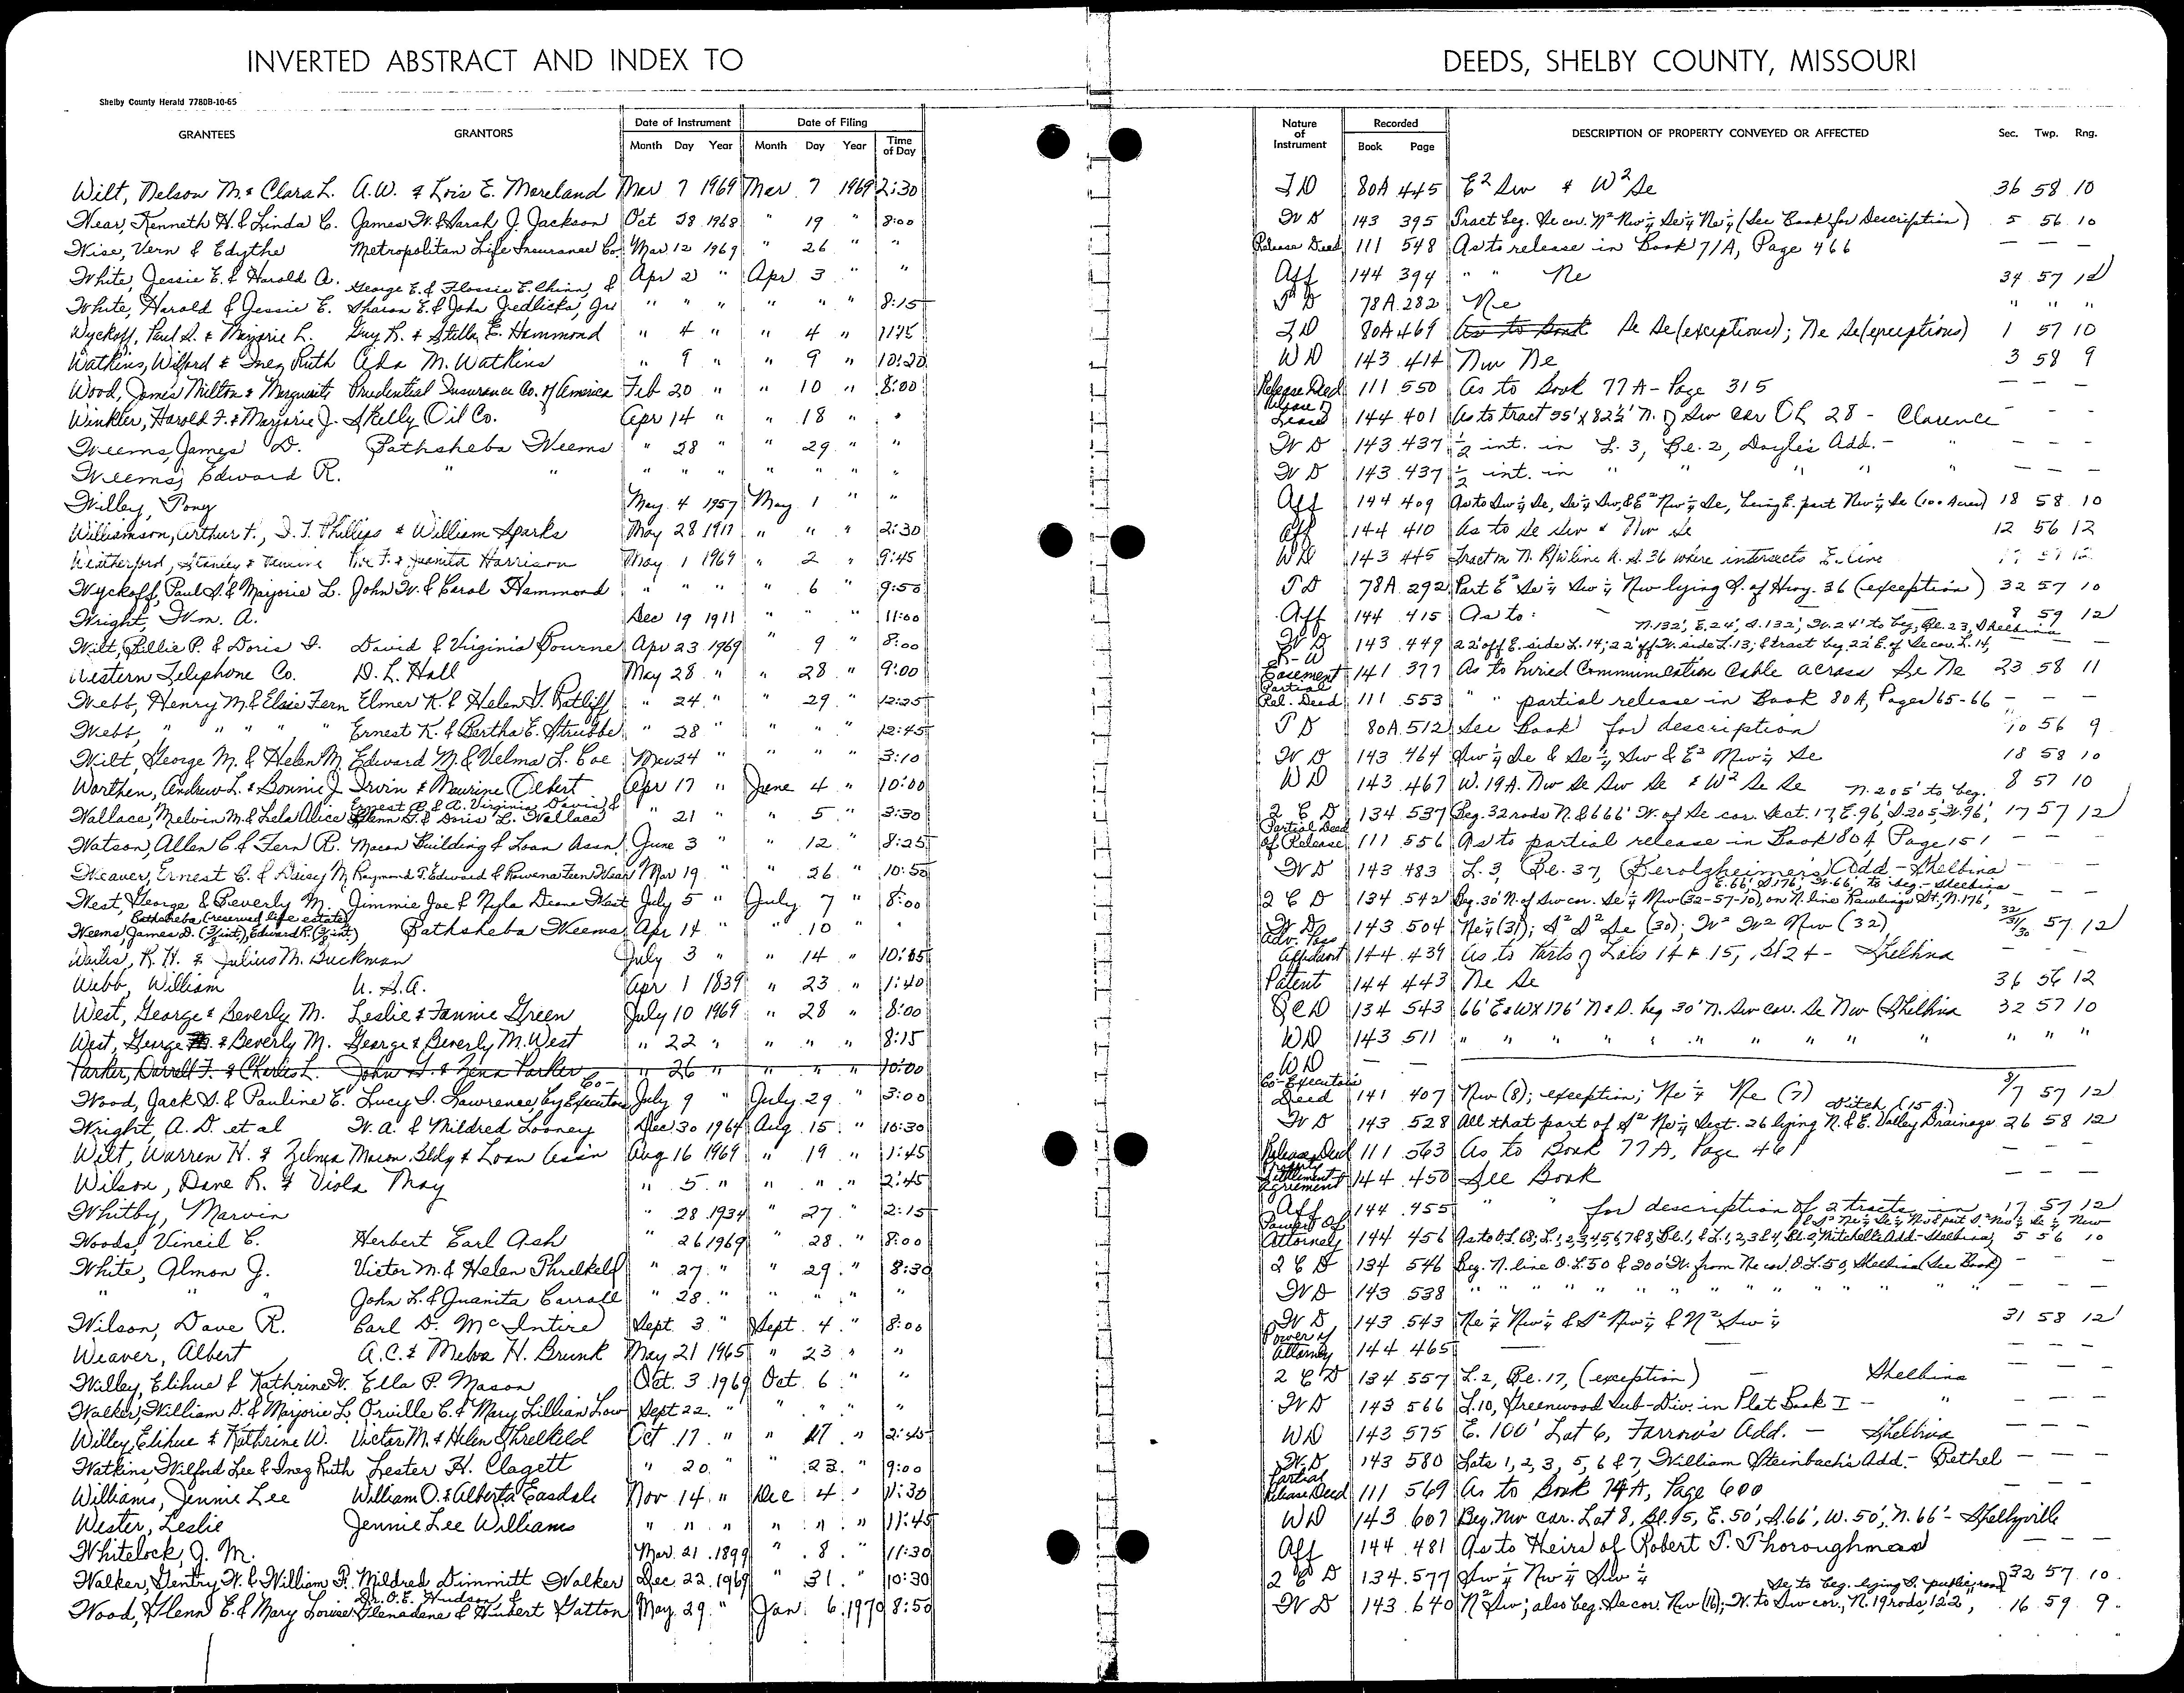 INVERTED ABSTRACT AND INDEX TO DEEDS, SHELBY COUNTY, MISSOURI
Shelby County Herald 7780B-10-65
GRANTEES GRANTORS Date of Instrument Month Day Year Date of Filing Month Day Year Time of Day Nature of Instrument Recorded Book Page DESCRIPTION OF PROPERTY CONVEYED OR AFFECTED Sec. Twp. Rng.
Wilt, Nelson M. & Clara L. A.W. & Lois E. Moreland Mar 7 1969 Mar. 7 1969 2:30 T D 80A 445 E² Sw & W² Se 36 58 10
Wear, Kenneth H. & Linda C. James W. & Sarah J. Jackson Oct 28 1968 " 19 " 8:00 W D 143 395 Tract beg. Se cor. N² Nw¼ Se¼ Ne¼ (See Book for Description) 5 56 10
Wise, Vern & Edythe Metropolitan Life Insurance Co. Mar 12 1969 " 26 " " Release Deed 111 548 As to release in Book 71A, Page 466 — — —
White, Jessie E. & Harold A. Apr 2 " Apr 3 " " Aff 144 394 " " Ne 34 57 12
White, Harold & Jessie E. George E. & Flossie E. Chinn, & Sharon E. & John Jedlicka, Jr. " " " " " " 8:15 T D 78A 282 Ne " " "
Wyckoff, Paul S. & Marjorie L. Guy R. & Stella E. Hammond " 4 " " 4 " 11:15 T D 80A 469 As to Book Se Se (exceptions); Ne Se (exceptions) 1 57 10
Watkins, Wilford & Inez Ruth Ada M. Watkins " 9 " " 9 " 10:20 WD 143 414 Nw Ne 3 58 9
Wood, James Milton & Marguerite Prudential Insurance Co. of America Feb 20 " " 10 " 8:00 Release Deed 111 550 As to Book 77A - Page 315 — — —
Winkler, Harold F. & Marjorie J. Skelly Oil Co. Apr 14 " " 18 " " Release of Lease 144 401 As to tract 55' x 82½' N. of Sw cor OL 28 - Clarence - - -
Weems, James D. Bathsheba Weems " 28 " " 29 " " W D 143 437 ½ int. in L. 3, Bl. 2, Doyle's Add. - " — — —
Weems, Edward R. " " " " " " " " " W D 143 437 ½ int. in " " " " — — —
Willey, Tony May 4 1957 May 1 " " Aff 144 409 As to Sw¼ Se, Se¼ Sw, & E² Nw¼ Se, being E. part Nw¼ Se (100 Acres) 18 58 10
Williamson, Arthur F., I. T. Phillips & William Sparks May 28 1917 " " " 2:30 Aff 144 410 As to Se Sw & Nw Se 12 56 12
Weatherford, Stanley & & Juanita Harrison May 1 1969 " 2 " 9:45 WD 143 445 Tract on N. R/W line H. S. 36 where intersects E. line
Wyckoff, Paul S. & Marjorie L. John W. & Carol Hammond " " " " 6 " 9:50 T D 78A 292 Part E² Se¼ Sw¼ Nw lying S. of Hwy. 36 (exception) 32 57 10
Wright, Wm. A. Dec 19 1911 " " " 11:00 Aff 144 415 As to: — 8 59 12
N. 132', E. 24', S. 132', W. 24' to beg, Bl. 23, Shelbina
Wilt, Lillie P. & Doris I. David & Virginia Bourne Apr 23 1969 " 9 " 8:00 W D 143 449 22' off E. side L. 14; 22' off W. side L. 13; & tract beg. 22' E. of Se cor. L. 14, — —
Western Telephone Co. D. L. Hall May 28 " " 28 " 9:00 R-W Easement 141 377 As to buried Communication Cable across Se Ne 23 58 11
Webb, Henry M. & Elsie Fern Elmer K. & Helen I. Ratliff " 24 " " 29 " 12:25 Partial Rel. Deed 111 553 " " partial release in Book 80A, Pages 65-66 — — —
Webb, " " " " Ernest K. & Bertha E. Strubbe " 28 " " " " 12:45 T D 80A 512 See Book for description 10 56 9
Wilt, George M. & Helen M. Edward M. & Velma L. Coe Mar 24 " " " " 3:10 W D 143 464 Sw¼ Se & Se¼ Sw & E² Nw¼ Se 18 58 10
Worthen, Andrew L. & Bonnie J. Irvin & Maurine Albert Apr 17 " June 4 " 10:00 WD 143 467 W. 19A. Nw Se Sw Se & W² Se Se 8 57 10
N. 205' to beg.
Wallace, Melvin M. & Lela Alice Ernest B. & A. Virginia Davis & Glenn D. & Doris L. Wallace " 21 " " 5 " 3:30 Q C D 134 537 Beg. 32 rods N. & 666' W. of Se cor. Sect. 17, E. 96', S. 205', W. 96', 17 57 12
Watson, Allen C. & Fern R. Macon Building & Loan Assn. June 3 " " 12 " 8:25 Partial Deed of Release 111 556 As to partial release in Book 80A, Page 151 — — —
Weaver, Ernest C. & Daisy M. Raymond T. Edward & Rowena Fern Wear Mar 19 " " 26 " 10:50 W D 143 483 L. 3, Bl. 37, (Kerolzheimer's) Add - Shelbina — — —
E. 66', S. 176', W. 66', to beg. - Shelbina
West, George & Beverly M. Jimmie Joe & Nyla Deane West July 5 " July 7 " 8:00 Q C D 134 542 Beg. 30' N. of Sw cor. Se¼ Nw (32-57-10), on N. line Rawlings St, N. 176', — — —
Bathsheba (reserved life estate)
Weems, James D. (½ int.), Edward R. (½ int.) Bathsheba Weems Apr 14 " " 10 " " W D 143 504 Ne¼ (31); S² S² Se (30); W² W² Nw (32) 32/31/30 57 12
Wailes, R. H. & Julius M. Buckman July 3 " " 14 " 10:05 Adv. Poss Affidavit 144 439 As to Parts of Lots 14 & 15, Bl 24 - Shelbina —
Webb, William U.S.A. Apr 1 1839 " 23 " 1:40 Patent 144 443 Ne Se 36 56 12
West, George & Beverly M. Leslie & Fannie Green July 10 1969 " 28 " 8:00 QCD 134 543 66' E & W X 176' N & S. beg 30' N. Sw cor. Se Nw (Shelbina 32 57 10
West, George & Beverly M. George & Beverly M. West " 22 " " " " 8:15 WD 143 511 " " " " " " " " " " " " "
Parker, Darrell F. & Charlis L. John G. & Zena Parker " 26 " " " " 10:00 WD — —
Wood, Jack S. & Pauline E. Lucy I. Lawrence, by Co-Executors July 9 " July 29 " 3:00 Co-Executors Deed 141 407 Nw (8); exception; Ne¼ Ne (7) 8/7 57 12
Ditch (15 A.)
Wright, A. D. et al W. A. & Mildred Looney Dec 30 1964 Aug. 15 " 10:30 W D 143 528 All that part of S² Ne¼ Sect. 26 lying N. & E. Valley Drainage 26 58 12
Wilt, Warren H. & Zelma Macon Bldg & Loan Assn Aug 16 1969 " 19 " 1:45 Release Deed 111 563 As to Book 77A, Page 461 — — —
Wilson, Dave R. & Viola May " 5 " " " " 2:45 Property Settlement Agreement 144 450 See Book — — —
Whitby, Marvin " 28 1934 " 27 " 2:15 Aff 144 455 " " for description of 2 tracts in 17 57 12
Woods, Vincil C. Herbert Earl Ash " 26 1969 " 28 " 8:00 Power Of Attorney 144 456 As to OL 68; L. 1, 2, 3, 4, 5, 6, 7 & 8, Bl. 1, & L. 1, 2, 3 & 4, Bl. 2, Mitchell's Add - Shelbina; 5 56 10
White, Almon J. Victor M. & Helen Threlkeld " 27 " " 29 " 8:30 Q C D 134 546 Beg. N. line O.L. 50 & 200' W. from Ne cor. O.L. 50, Shelbina (See Book) — — —
" " " John L. & Juanita Carroll " 28 " " " " " W D 143 538 " " " " " " " " " " "
Wilson, Dave R. Carl D. McIntire Sept. 3 " Sept. 4 " 8:00 W D 143 543 Ne¼ Nw¼ & S² Nw¼ & N² Sw¼ 31 58 12
Weaver, Albert A.C. & Melva H. Brunk May 21 1965 " 23 " " Power of Attorney 144 465 — — — —
Willey, Elihue & Kathrine W. Ella P. Mason Oct. 3 1969 Oct. 6 " " Q C D 134 557 L. 2, Bl. 17, (exception) — Shelbina — — —
Walker, William D. & Marjorie L. Orville C. & Mary Lillian Low Sept 22 " " " " " W D 143 566 L. 10, Greenwood Sub-Div. in Plat Book I - " — — —
Willey, Elihue & Kathrine W. Victor M. & Helen Threlkeld Oct 17 " " 17 " 2:45 WD 143 575 E. 100' Lot 6, Farrow's Add. — Shelbina — — —
Watkins, Wilford Lee & Inez Ruth Lester H. Clagett " 20 " " 23 " 9:00 W.D. 143 580 Lots 1, 2, 3, 5, 6 & 7, William Steinbach's Add. - Bethel — — —
Williams, Jennie Lee William O. & Alberta Easdale Nov 14 " Dec 4 " 11:30 Partial Release Deed 111 569 As to Book 74A, Page 600 — —
Wester, Leslie Jennie Lee Williams " " " " " " 11:45 WD 143 607 Beg. Nw cor. Lot 8, Bl. 15, E. 50', S. 66', W. 50', N. 66' - Shelbyville
Whitelock, J. M. Mar. 21 1899 " 8 " 11:30 Aff 144 481 As to Heirs of Robert T. Thoroughman — — —
Walker, Gentry W. & William P. Mildred Dimmitt Walker Dec. 22 1969 " 31 " 10:30 Q C D 134 577 Sw¼ Nw¼ Sw¼ 32 57 10
Se to beg. lying S. public road
Wood, Glenn E. & Mary Louise Dr. O. E. Hudson, & Glenadene & Hubert Gatton May 29 " Jan 6 1970 8:50 W D 143 640 N² Sw; also beg. Se cor. Nw (16); W. to Sw cor., N. 19 rods, 122, 16 59 9